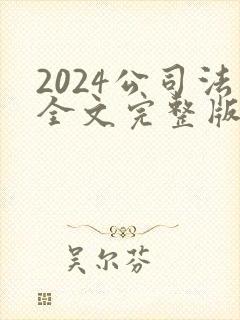 2024公司法
全文完整版
吴尔芬